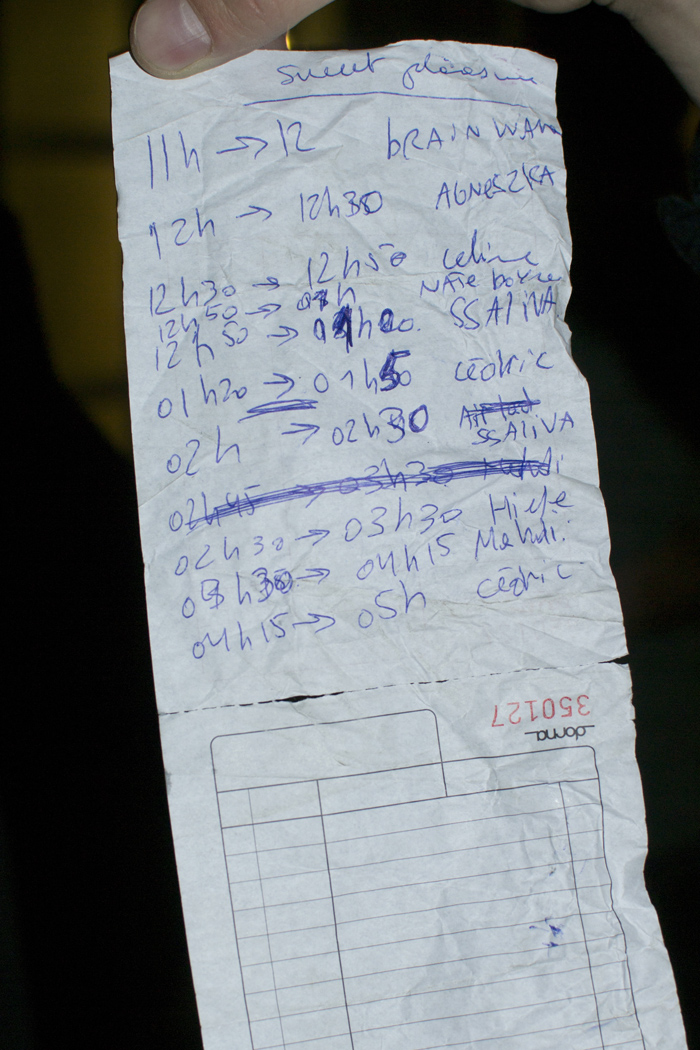 Sweet pleasure
11h → 12 bRAIN WAVE
12h → 12h30 AGNESZKA
12h30 → 12h50 celine
12h50 → 01h NATE boyce
12h50 → 01h20. SSALIVA
01h20 → 01h50 cédric
02h → 02h30
SSALIVA
02h45 → 03h30 Mahdi
02h30 → 03h30 Hiele
03h30 → 04h15 Mahdi.
04h15 → 05h cédric
350127
dorna